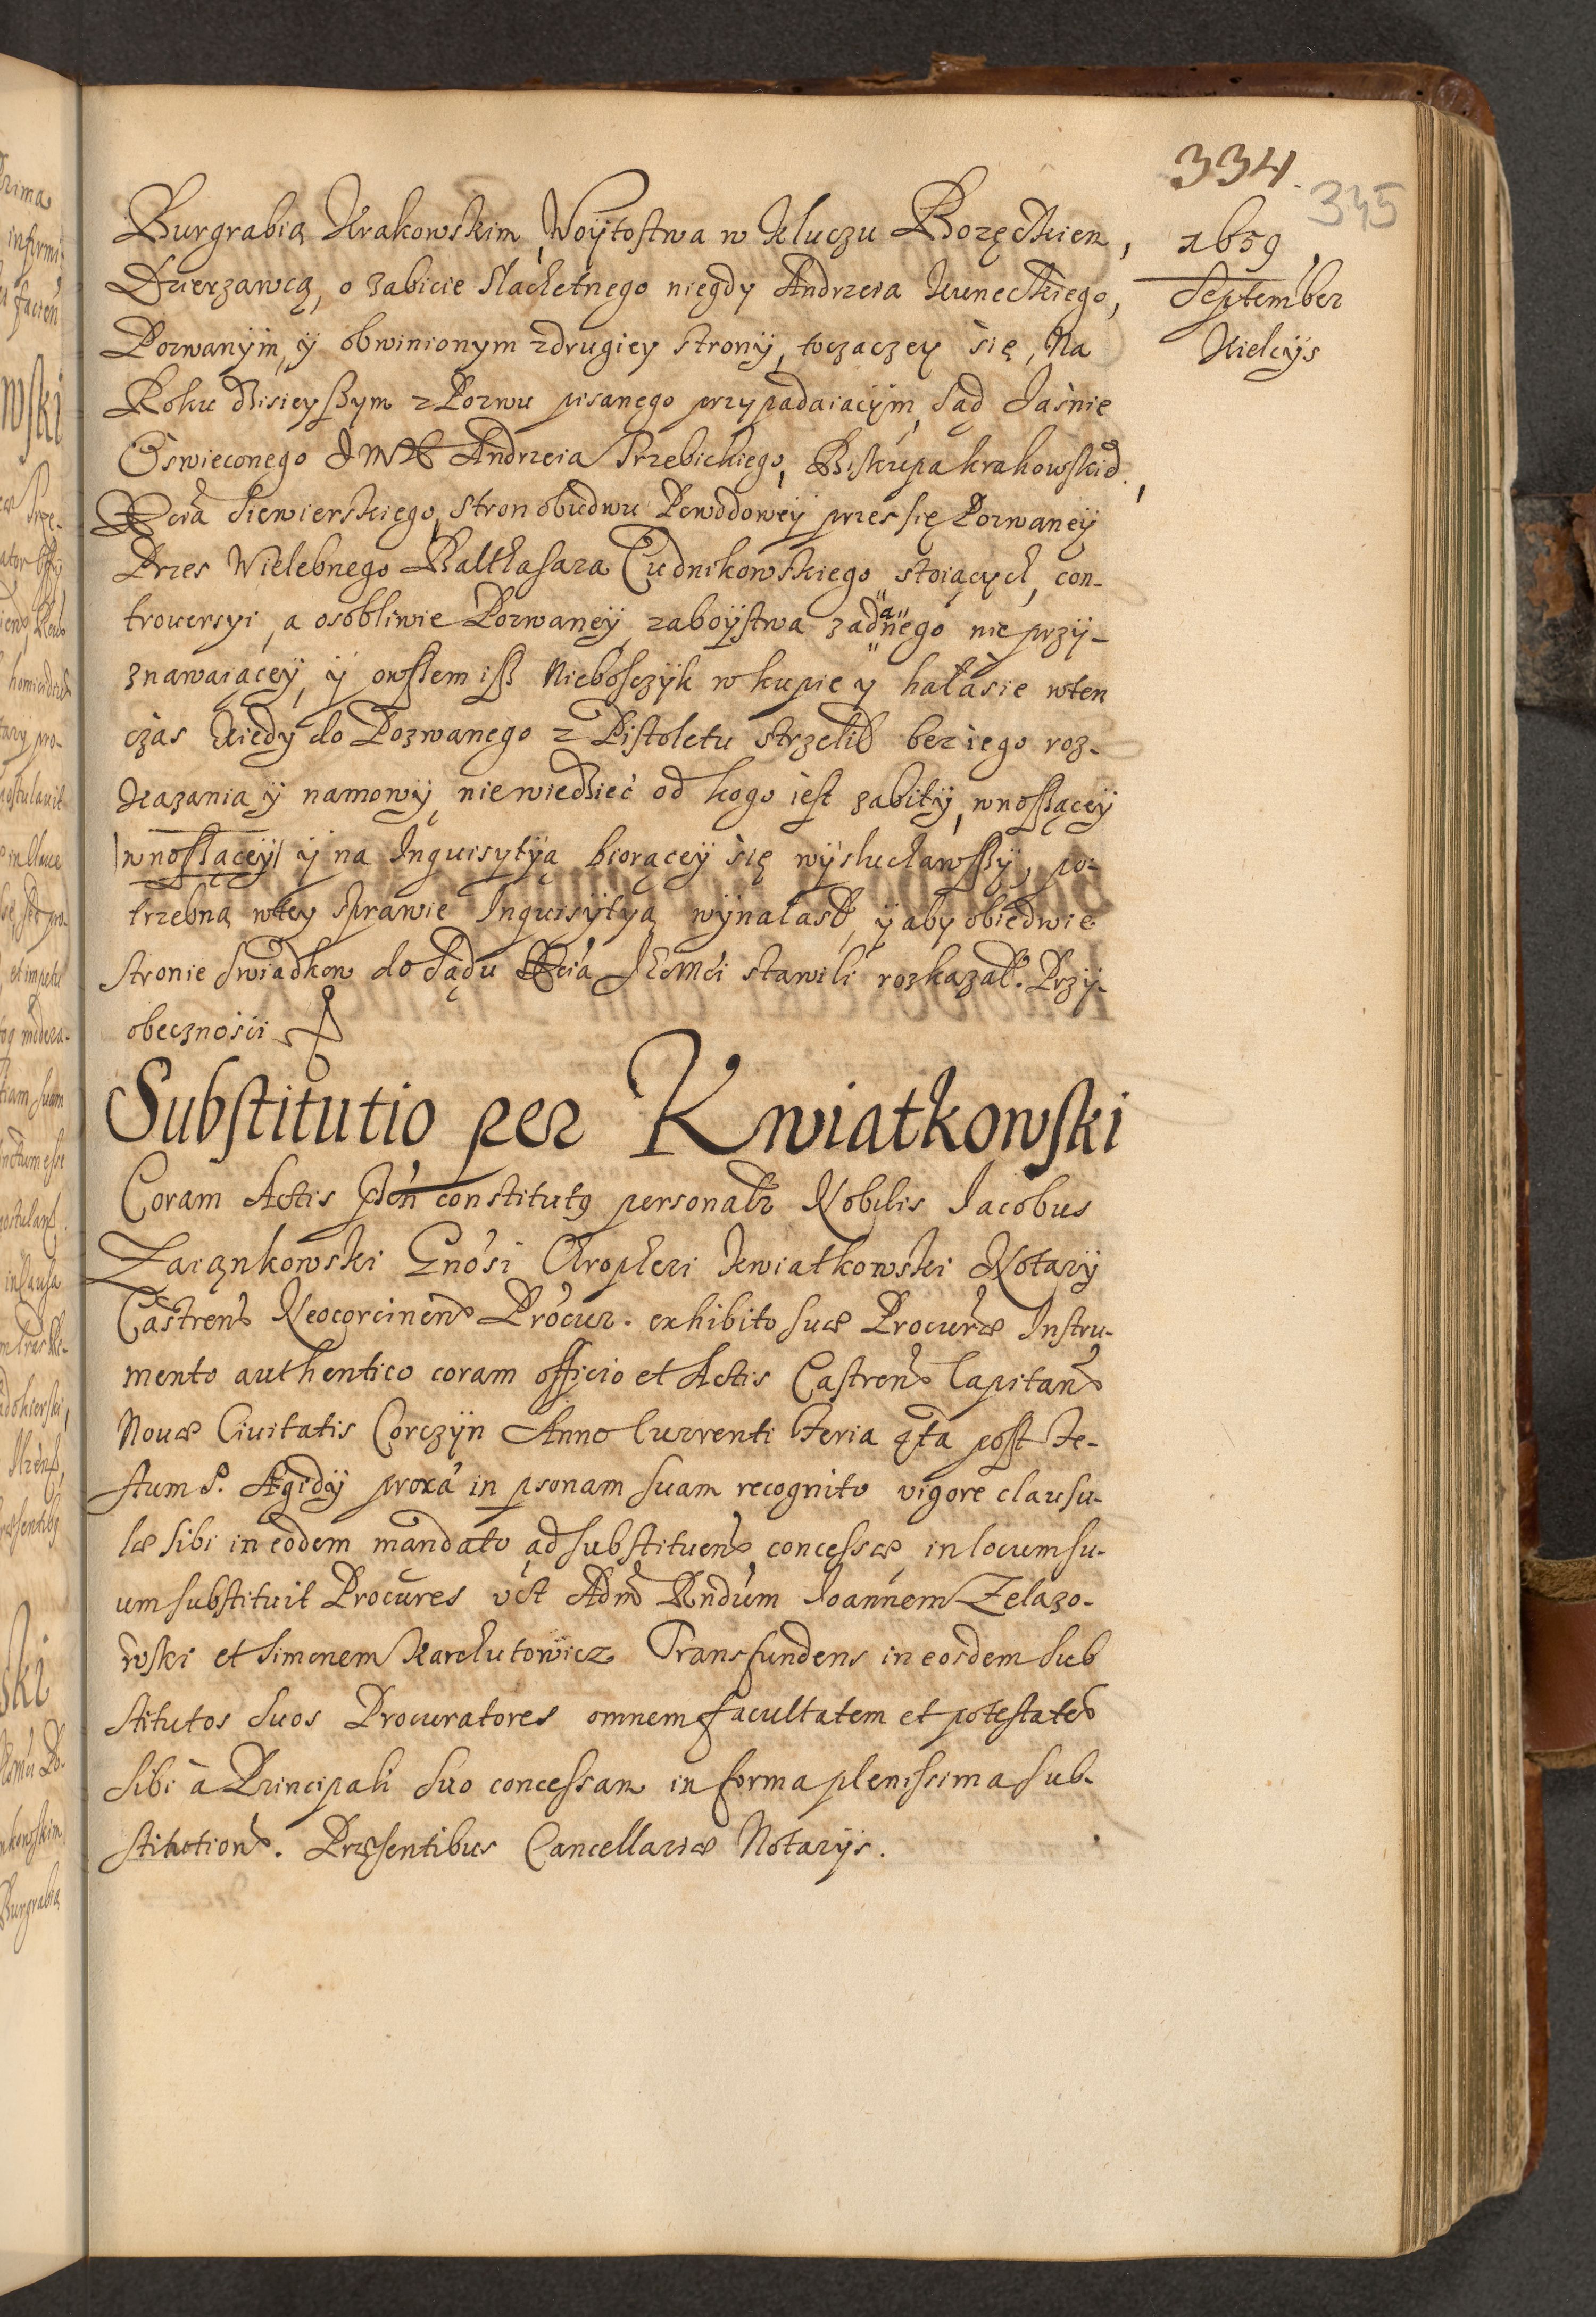 334.
335
1659
September
Kielcÿs
Burgrabią Krakowskim, Woÿtostwa w Kluczu Bozęckien,
Dzierzawcą, o zabicie slachetnego niegdy Andrzeia Kuneckiego,
Pozwanÿm, ÿ obwinionym zdrugiey stronÿ, toczaczey się, Na
Roku dzisieyszym z Pozwu pisanego przypadaiacÿm, sąd Jaśnie
Oswieconego JMX Andrzeia Trzebickiego, Biskupa krakowskieo,
Xcia Siewierskiego, stron obudwu Powodoweÿ przes się Pozwaneÿ
Przes Wielebnego Balthasara Cudnikowskiego stoiących, con-
trouersyi, a osobliwie Pozwaneÿ, zaboÿstwa zadnego nie przÿ-
znawaiąceÿ, ÿ owszem isz Niebosczÿk w kupie y hałasie wten
czas kiedy do Pozwanego z Pistoletu strzelił bez iego roz-
kazania ÿ namowÿ, niewiedziec od kogo iest zabitÿ, wnosząceÿ
|wnosząceÿ| ÿ na Inquisytÿą biorąceÿ się wÿsłuchawszÿ, po-
trzebną wtey sprawie Inquisÿtyą wÿnałasł, ÿ aby obiedwie
stronie swiadkow do Sądu Xcia JeoMći stawili rozkazał. Przÿ-
obecznosći
Substitutio per Kwiatkowski
Coram Actis pñ constitutq personalr Nobilis Jacobus
Zaiąnkowski Gnosi Chropheri Kwiatkowski Notarÿ
Castren Neocorcinen Procur. exhibito suæ Procuræ Instru-
mento authentico coram officio et Actis Castren Capitan
Nouæ Ciuitatis Corczÿn Anno Currenti Feria qta post Fe-
stum S. Ægidÿ proxa in psonam suam recognito vigore clausu-
læ sibi in eodem mandato ad substituen concessæ in locum su-
um substituit Procures vst Adm Rndum Joannem Zelazo-
wski et Simonem Karchutowicz Transfundens in eosdem sub
stitutos suos Procuratores omnem facultatem et potestate
sibi à Principali suo concessam in forma plenissima sub-
stitution. Præsentibus Cancellariæ Notarÿs.